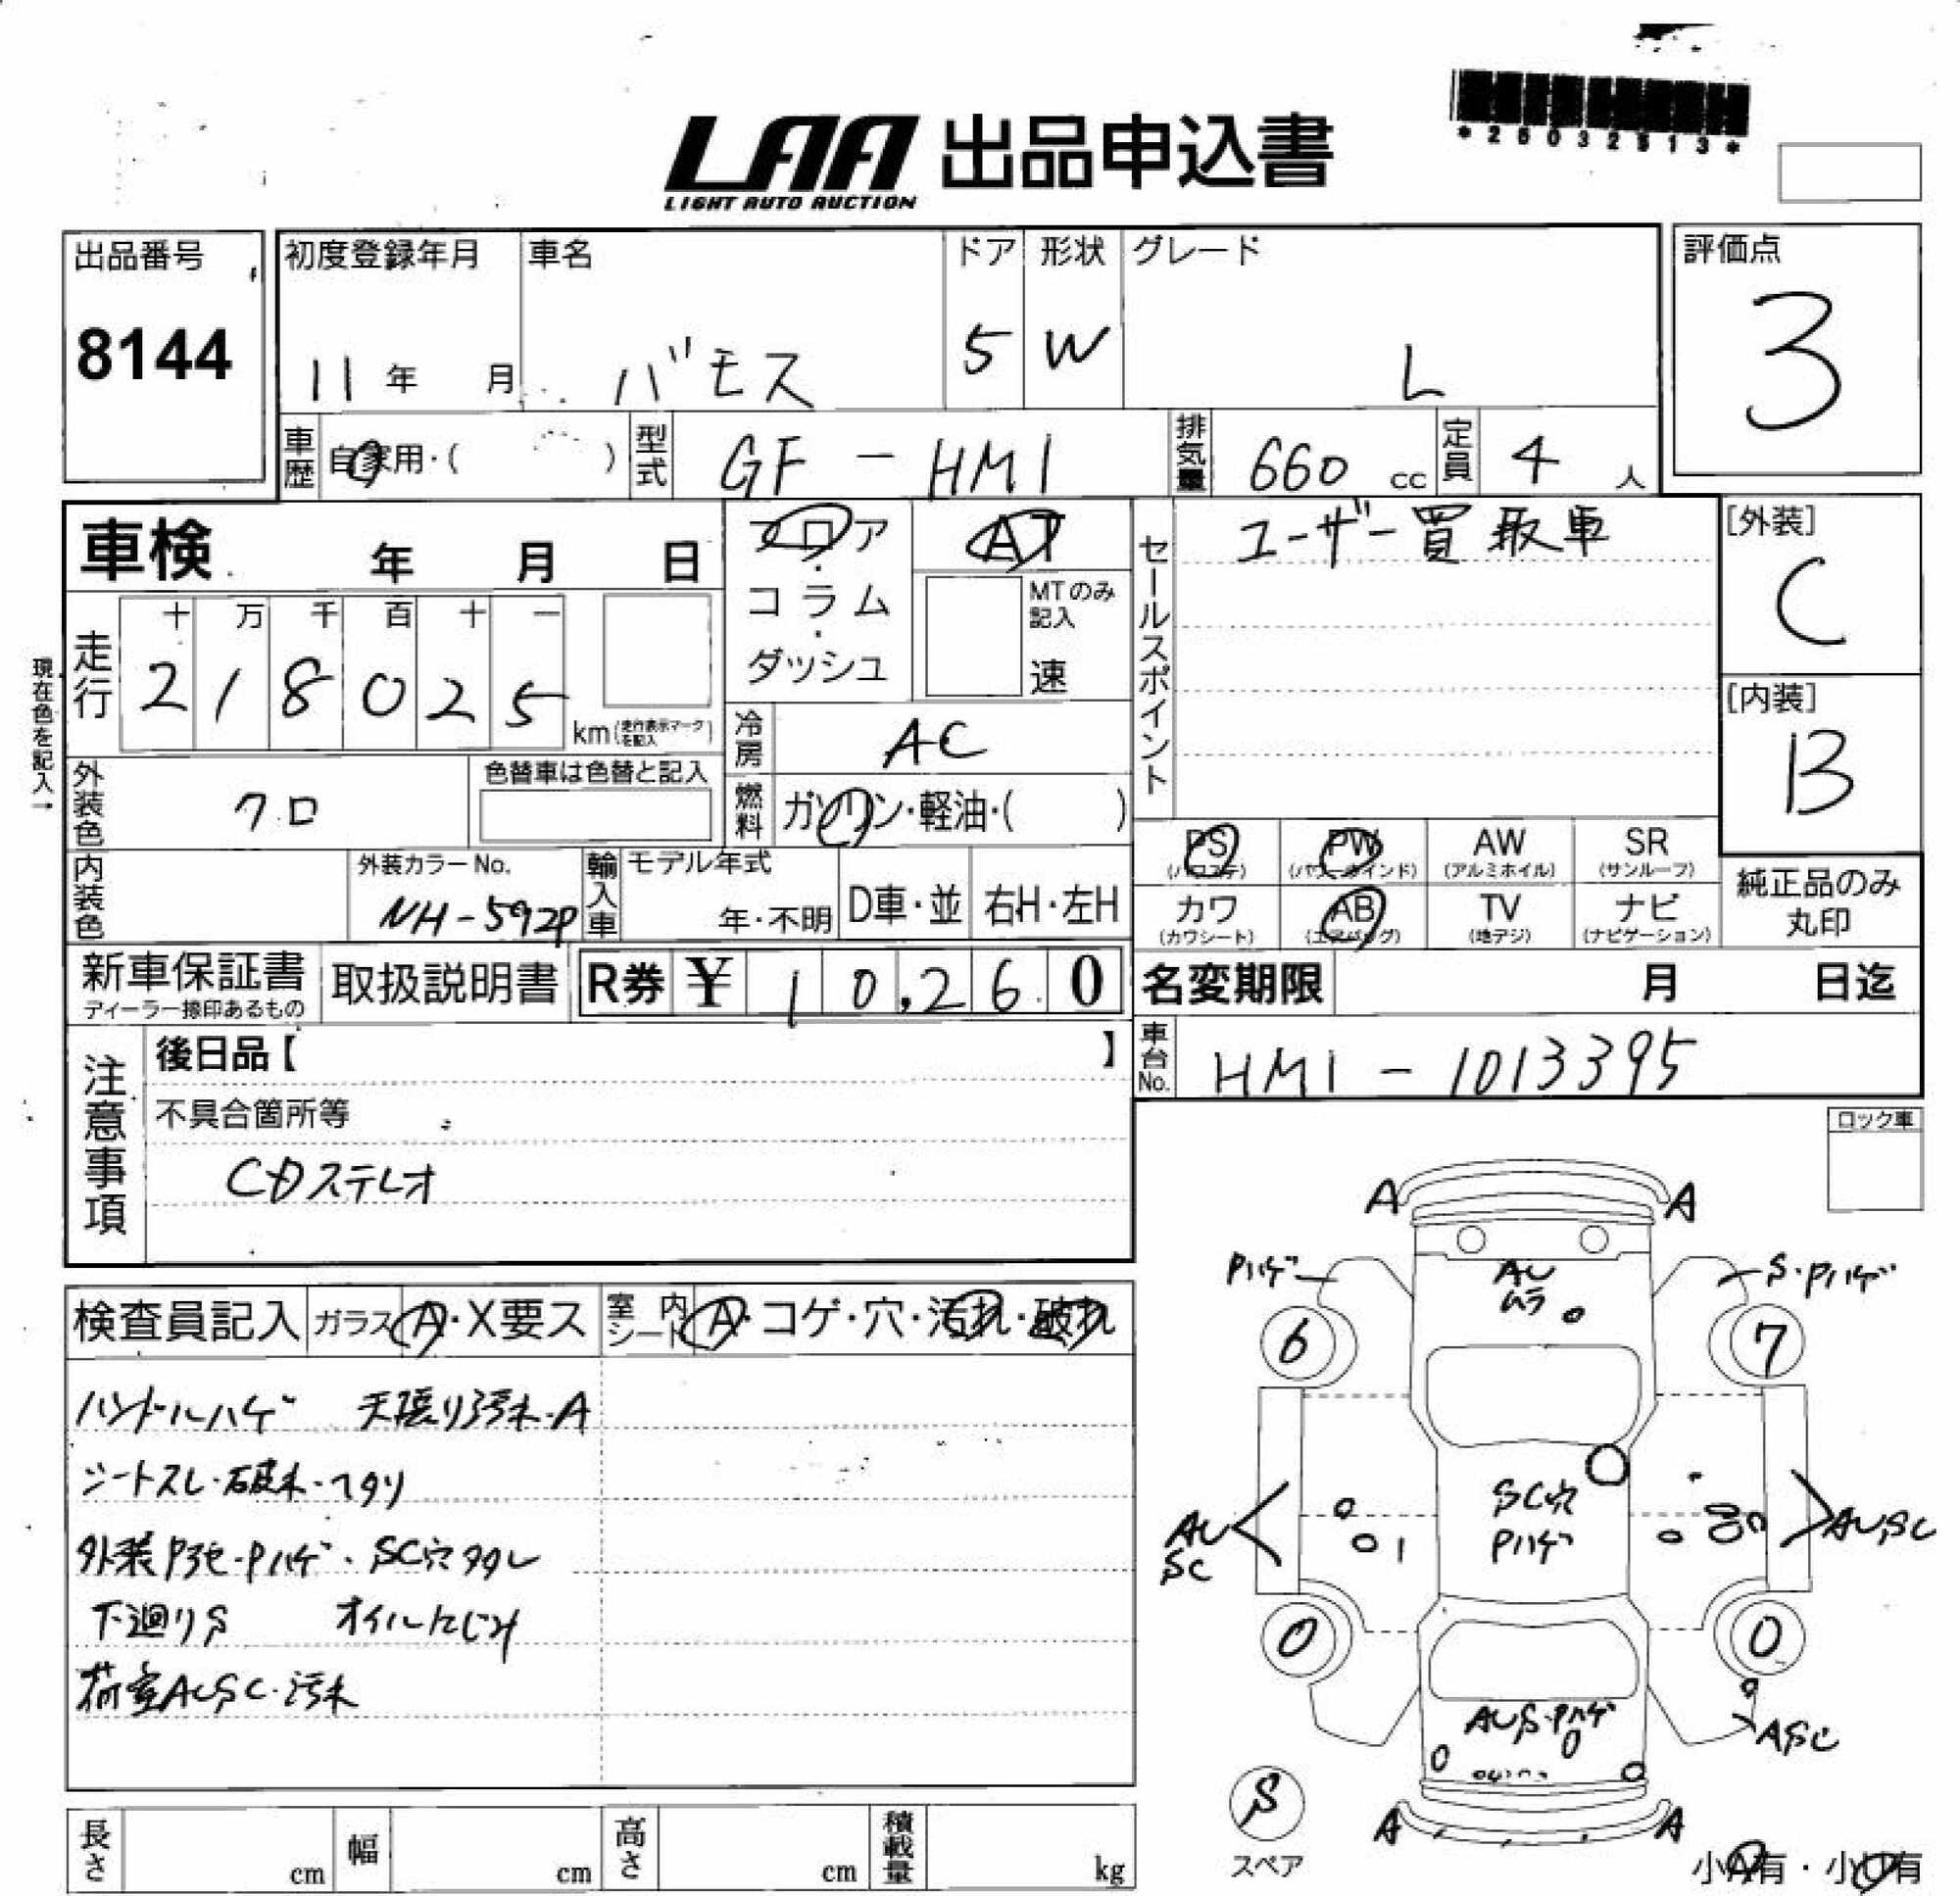 LAA 出品申込書
LIGHT AUTO AUCTION
*26032513*
出品番号
8144
初度登録年月
11年 月
車名
バモス
ドア
5
形状
W
グレード
L
評価点
3
車歴
自家用・( )
型式
GF-HM1
排気量
660 cc
定員
4 人
車検 年 月 日
フロア・コラム・ダッシュ
AT
MTのみ記入
速
セールスポイント
ユーザー買取車
[外装]
C
[内装]
B
現在色を記入→
走行
十 万 千 百 十 一
2 1 8 0 2 5
km(走行表示マークを記入)
冷房
AC
外装色
クロ
色替車は色替と記入
燃料
ガソリン・軽油・( )
内装色
外装カラーNo.
NH-592P
輸入車
モデル年式
年・不明
D車・並
右H・左H
PS
(パワステ)
PW
(パワーウインド)
AW
(アルミホイル)
SR
(サンルーフ)
カワ
(カワシート)
AB
(エアバッグ)
TV
(地デジ)
ナビ
(ナビゲーション)
純正品のみ
丸印
新車保証書
ディーラー捺印あるもの
取扱説明書
R券 ¥ 10,260
名変期限 月 日迄
注意事項
後日品【 】
車台No.
HM1-1013395
不具合箇所等
CDステレオ
ロック車
検査員記入
ガラス A・X要ス
室内シート A・コゲ・穴・汚れ・破れ
ハンドルハゲ 天張り汚れ・A
シートスレ・破れ・ヘタリ
外装P劣化・Pハゲ・SC穴多シ
下廻りS オイルにじみ
荷室AUSC・汚れ
A A
Pハゲ
S・Pハゲ
AU
ムラ
6 7
SC穴
Pハゲ
AU
SC
AUSC
0 0
AUS・Pハゲ
ASC
S
スペア
A A
小A有・小U有
長さ cm
幅 cm
高さ cm
積載量 kg